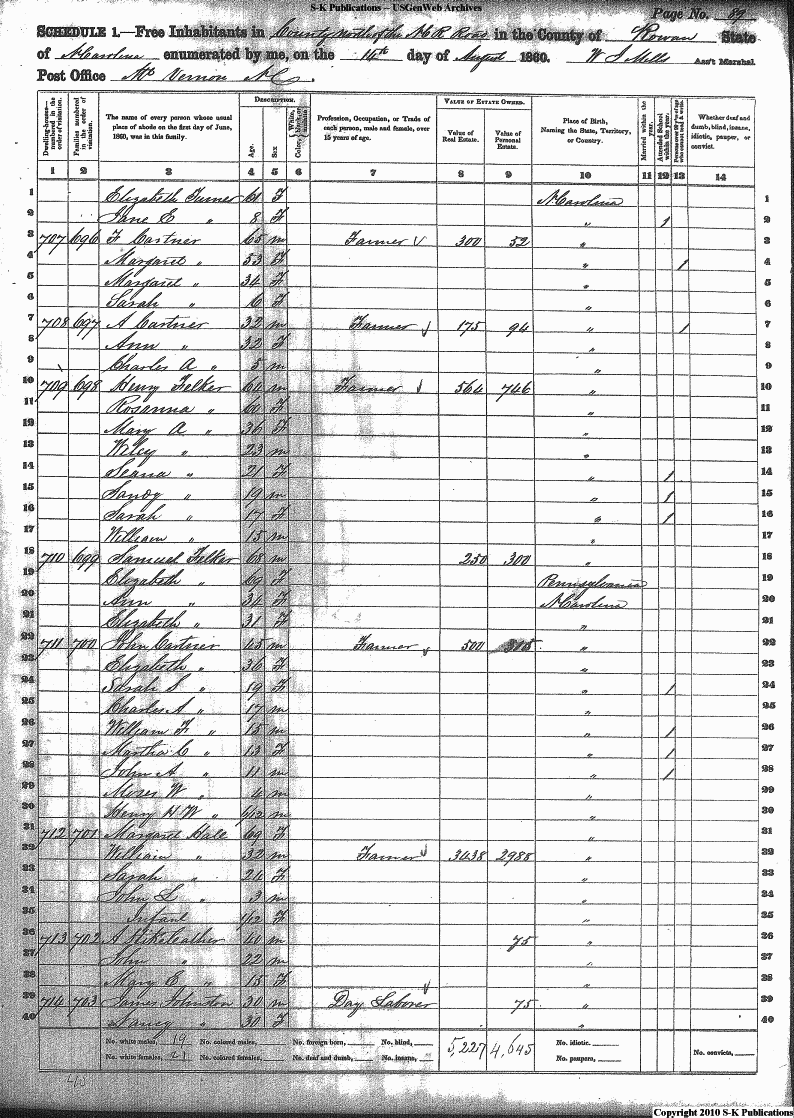 S-K Publications – USGenWeb Archives
Page No. 89
SCHEDULE 1.—Free Inhabitants in County north of the N.C.R. Road in the County of Rowan State
of N Carolina enumerated by me, on the 14th day of August 1860. W J Mills Ass't Marshal.
Post Office Mt Vernon N C.
Dwelling-houses—numbered in the order of visitation. Families numbered in the order of visitation. The name of every person whose usual place of abode on the first day of June, 1860, was in this family. Description. Age. Sex Profession, Occupation, or Trade of each person, male and female, over 15 years of age. Value of Estate Owned. Value of Real Estate. Value of Personal Estate. Place of Birth, Naming the State, Territory, or Country. Married within the year. Attended School within the year. Whether deaf and dumb, blind, insane, idiotic, pauper, or convict.
1 2 3 4 5 6 7 8 9 10 11 12 13 14
1 Elizabeth Turner 61 F N Carolina 1
2 Jane E " 8 F " 1 2
3 707 696 F Cartner 65 m Farmer 300 52 " 3
4 Margaret " 53 F " 1 4
5 Margaret " 34 F " 5
6 Sarah " 6 F " 6
7 708 697 A Cartner 32 m Farmer 175 94 " 1 7
8 Ann " 32 F " 8
9 Charles A " 5 m " 9
10 709 698 Henry Felker 64 m Farmer 564 746 " 10
11 Rosanna " 60 F " 11
12 Mary A " 36 F " 12
13 Wiley " 23 m " 13
14 Leana " 21 F " 1 14
15 Sandy " 19 m " 1 15
16 Sarah " 17 F " 1 16
17 William " 15 m " 17
18 710 699 Samuel Felker 68 m 250 300 " 18
19 Elizabeth " 69 F Pennsylvania 19
20 Ann " 34 F N Carolina 20
21 Elizabeth " 31 F " 21
22 711 700 John Cartner 45 m Farmer 500 315 " 22
23 Elizabeth " 36 F " 23
24 Sarah S " 19 F " 1 24
25 Charles A " 17 m " 25
26 William F " 15 m " 1 26
27 Martha C " 13 F " 1 27
28 John A " 11 m " 1 28
29 Moses W " 4 m " 29
30 Henry H W " 9/12 m " 30
31 712 701 Margaret Hall 69 F " 31
32 William " 32 m Farmer 3438 2988 " 32
33 Sarah " 24 F " 33
34 John L " 3 m " 34
35 Infant 1/12 F " 35
36 713 702 A Hikeleather 40 m 75 " 36
37 John " 22 m " 37
38 Mary E " 15 F " 38
39 714 703 James Johnston 30 m Day Laborer 75 " 39
40 Nancy " 30 F " 40
No. white males, 19 No. colored males, No. foreign born, No. blind, 5,227 4,645 No. idiotic,
No. white females, 21 No. colored females, No. deaf and dumb, No. insane, No. paupers, No. convicts,
Copyright 2010 S-K Publications